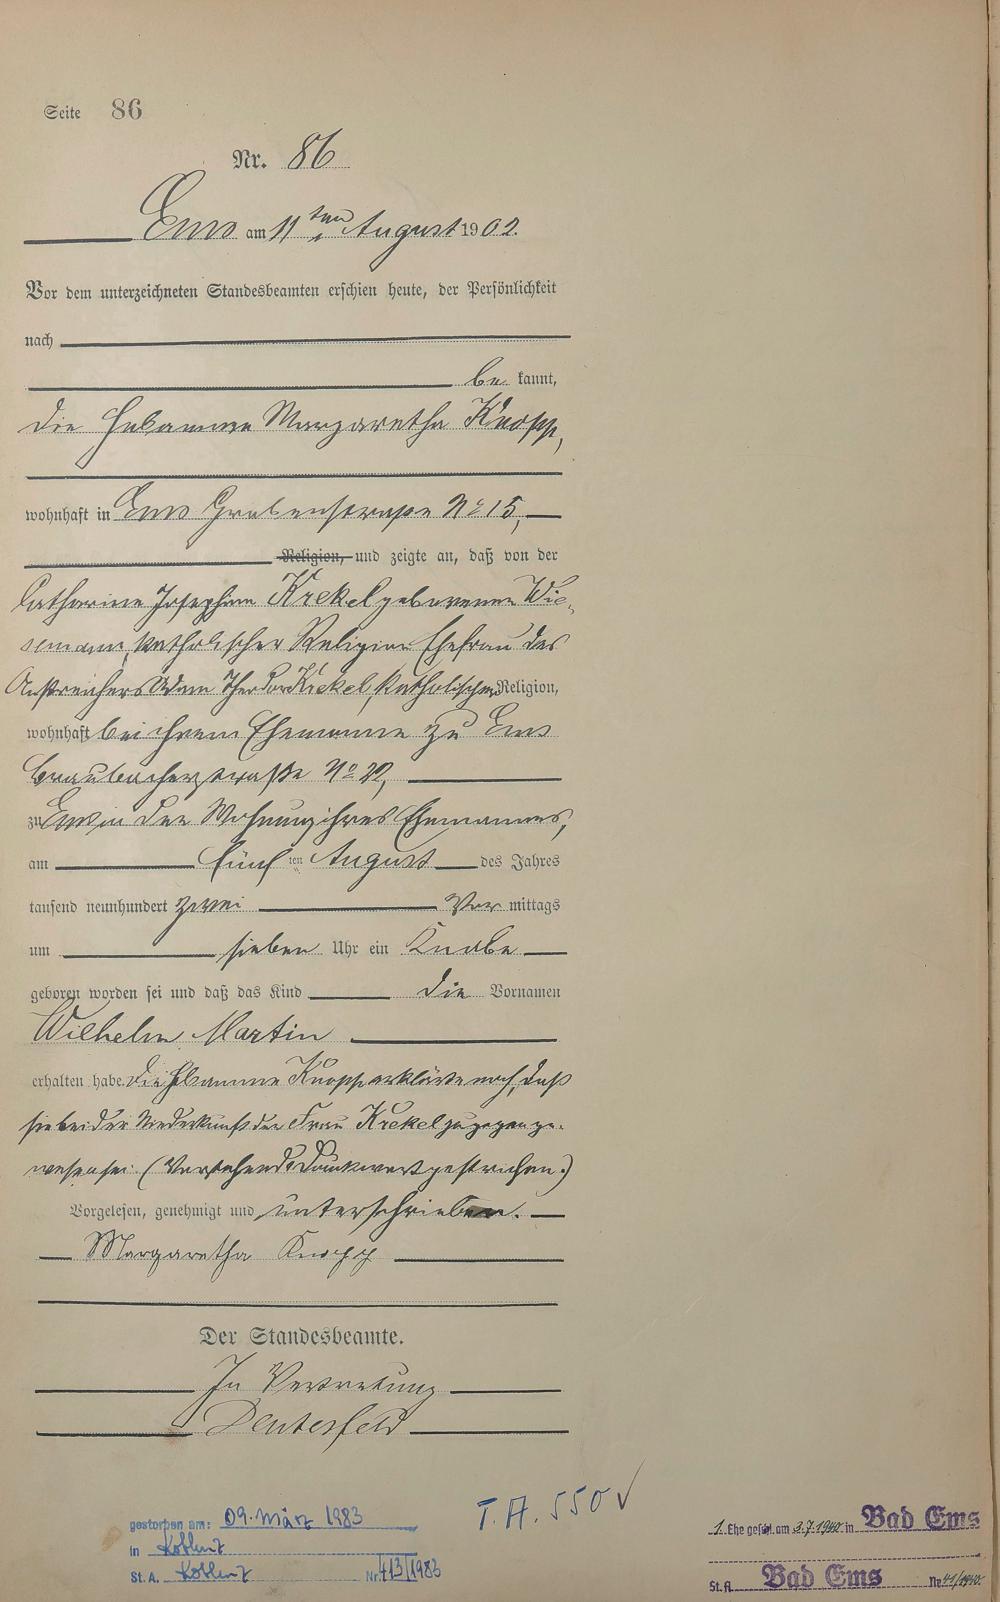 Seite 86
Nr. 86
Ems am 11ten August 1902.
Vor dem unterzeichneten Standesbeamten erschien heute, der Persönlichkeit
nach
be kannt,
die Hebamme Margaretha Knopp,
wohnhaft in Ems Grabenstraße No 15,
Religion, und zeigte an, daß von der
Catharina Josephine Krekel geborenen Wie-
semann, katholischer Religion Ehefrau des
Anstreichers Adam Theodor Krekel, katholischer Religion,
wohnhaft bei ihrem Ehemanne zu Ems
Braubacherstraße No 22,
zu Ems in der Wohnung ihres Ehemannes,
am fünf ten August des Jahres
tausend neunhundert zwei Vor mittags
um sieben Uhr ein Knabe
geboren worden sei und daß das Kind die Vornamen
Wilhelm Martin
erhalten habe. Die Hebamme Knopp erklärte noch, daß
sie bei der Niederkunft der Frau Krekel zugegen ge-
wesen sei. (Vorstehend Druckwort gestrichen.)
Vorgelesen, genehmigt und unterschrieben.
Margaretha Knopp
Der Standesbeamte.
In Vertretung
T. A. 550 ✓
gestorben am: 09. März 1983
in Koblenz
St. A. Koblenz Nr 413/1983
1. Ehe geschl. am 2.7.1940 in Bad Ems
St. A. Bad Ems Nr 41/1940.